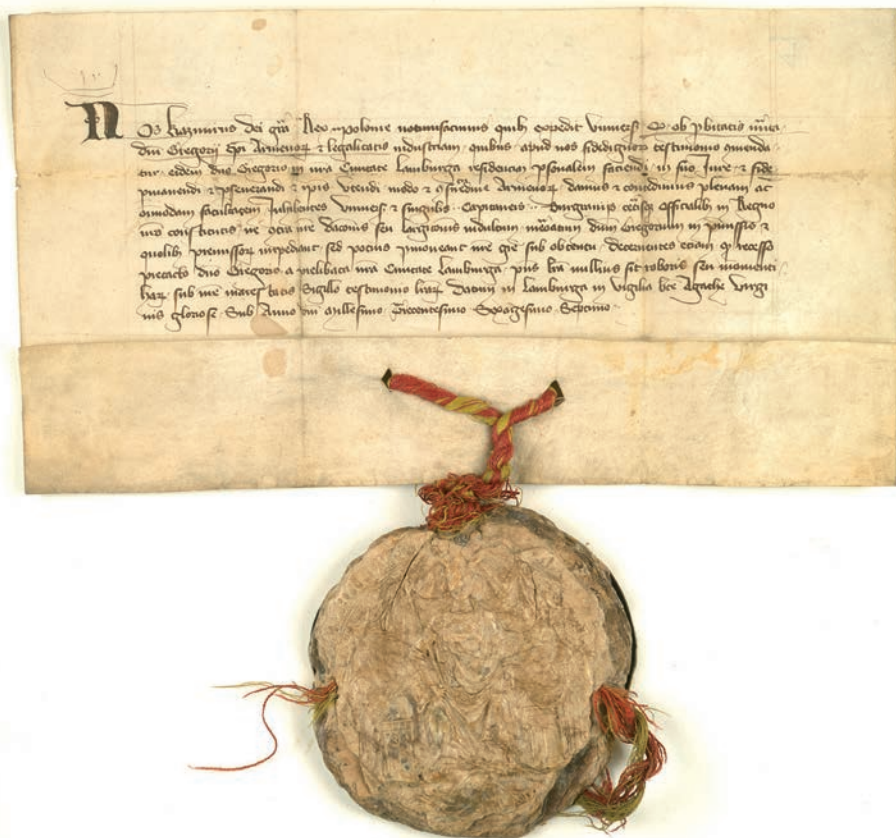 Nos Kazimirus dei gra Rex Polonie notumfacimus quibus expedit Universis Q ob probitatis
dni Gregorii Epi Armenorum & legalitatis industriam quibus apud nos fidedignorum testimonio
tur eidem dno Gregorio in nra Civitate Lamburga residenciam psonalem faciendi in suo Jure & fide
pmanendi & pseverandi & ipis utendi modo & Armenorum damus & concedimus plenam ac
omnimodam facultatem Inhibentes Universis & singulis Capitaneis Burgrabiis ceterisque Officialibus in Regno
nro constitutis ne contra nre dacionis seu largicionis indultum dnum Gregorium in premissis &
quolibet premissorum impediant sed pocius pmoveant nre gre sub obtentu decernentes eciam q recesso
dno Gregorio a prelibata nra Civitate Lamburga pns lra nullius sit roboris seu momenti
harum sub nre maiestatis Sigillo testimonio lrarum Datum in Lamburga in vigilia bte Agathe virgi
nis gloriose Sub Anno dni Millesimo Trecentesimo Sexagesimo Septimo